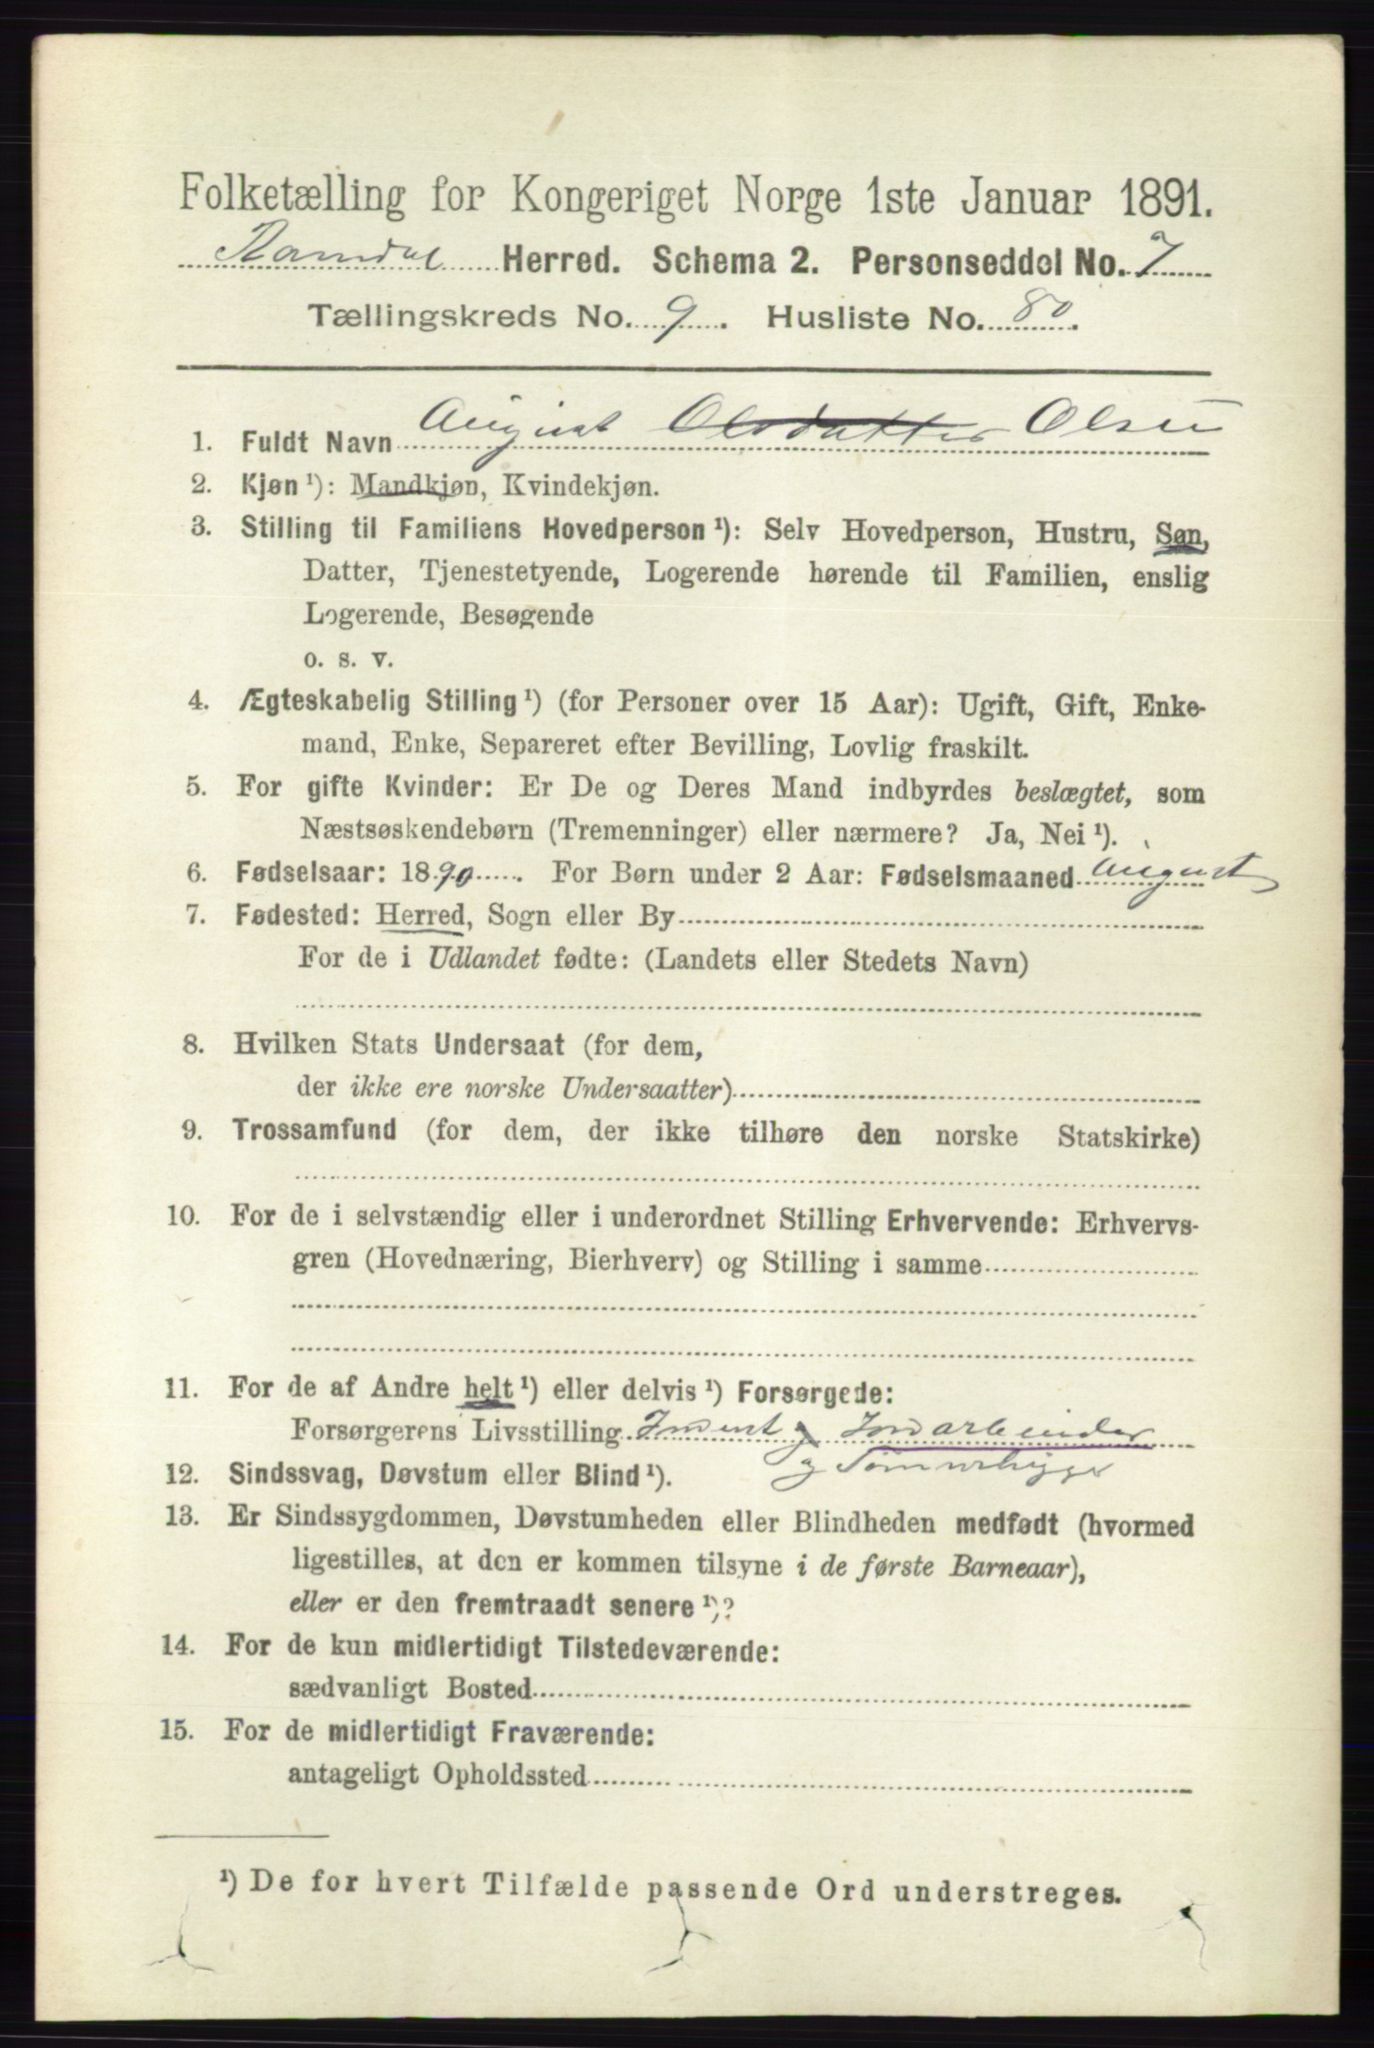 Folketælling for Kongeriget Norge 1ste Januar 1891.
Ramdal Herred. Schema 2. Personseddel No. 7
Tællingskreds No. 9. Husliste No. 80.
1. Fuldt Navn August Olsdatter Olsen
2. Kjøn ¹): Mandkjøn, Kvindekjøn.
3. Stilling til Familiens Hovedperson ¹): Selv Hovedperson, Hustru, Søn,
Datter, Tjenestetyende, Logerende hørende til Familien, enslig
Logerende, Besøgende
o. s. v.
4. Ægteskabelig Stilling ¹) (for Personer over 15 Aar): Ugift, Gift, Enke-
mand, Enke, Separeret efter Bevilling, Lovlig fraskilt.
5. For gifte Kvinder: Er De og Deres Mand indbyrdes beslægtet, som
Næstsøskendebørn (Tremenninger) eller nærmere? Ja, Nei ¹).
6. Fødselsaar: 1890. For Børn under 2 Aar: Fødselsmaaned August
7. Fødested: Herred, Sogn eller By
For de i Udlandet fødte: (Landets eller Stedets Navn)
8. Hvilken Stats Undersaat (for dem,
der ikke ere norske Undersaatter)
9. Trossamfund (for dem, der ikke tilhøre den norske Statskirke)
10. For de i selvstændig eller i underordnet Stilling Erhvervende: Erhvervs-
gren (Hovednæring, Bierhverv) og Stilling i samme
11. For de af Andre helt ¹) eller delvis ¹) Forsørgede:
Forsørgerens Livsstilling Inderst og Jordarbeider
og Tømmerhugger
12. Sindssvag, Døvstum eller Blind ¹).
13. Er Sindssygdommen, Døvstumheden eller Blindheden medfødt (hvormed
ligestilles, at den er kommen tilsyne i de første Barneaar),
eller er den fremtraadt senere ¹)?
14. For de kun midlertidigt Tilstedeværende:
sædvanligt Bosted
15. For de midlertidigt Fraværende:
antageligt Opholdssted
¹) De for hvert Tilfælde passende Ord understreges.